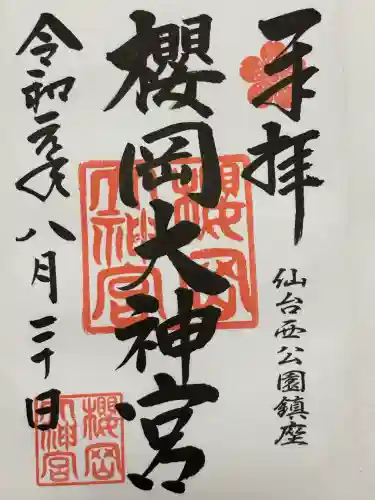 奉拝
仙台西公園鎮座
櫻岡大神宮
櫻岡
大神宮
令和元年八月三十日
櫻岡
大神宮